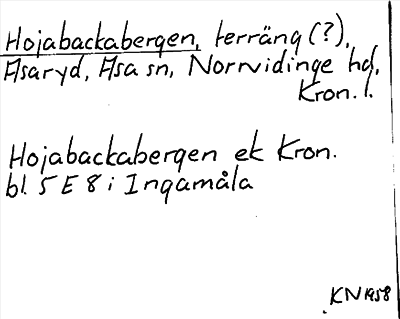 Hojabackabergen, terräng (?),
Asaryd, Asa sn, Norrvidinge hd,
Kron. l.
Hojabackabergen ek Kron.
bl. 5 E 8 i Ingamåla
KN 1958